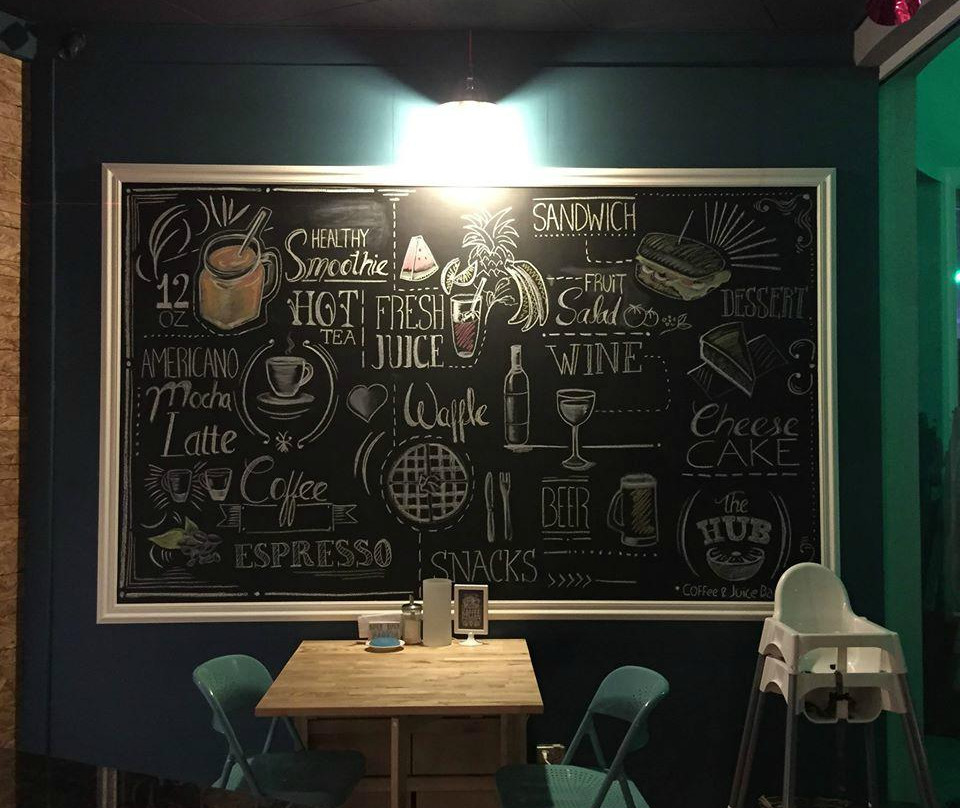 12
OZ
HEALTHY
Smoothie
HOT
TEA
FRESH
JUICE
SANDWICH
FRUIT
Salad
DESSERT
AMERICANO
Mocha
Latte
Waffle
WINE
Cheese
CAKE
Coffee
ESPRESSO
BEER
SNACKS
the
HUB
Coffee & Juice